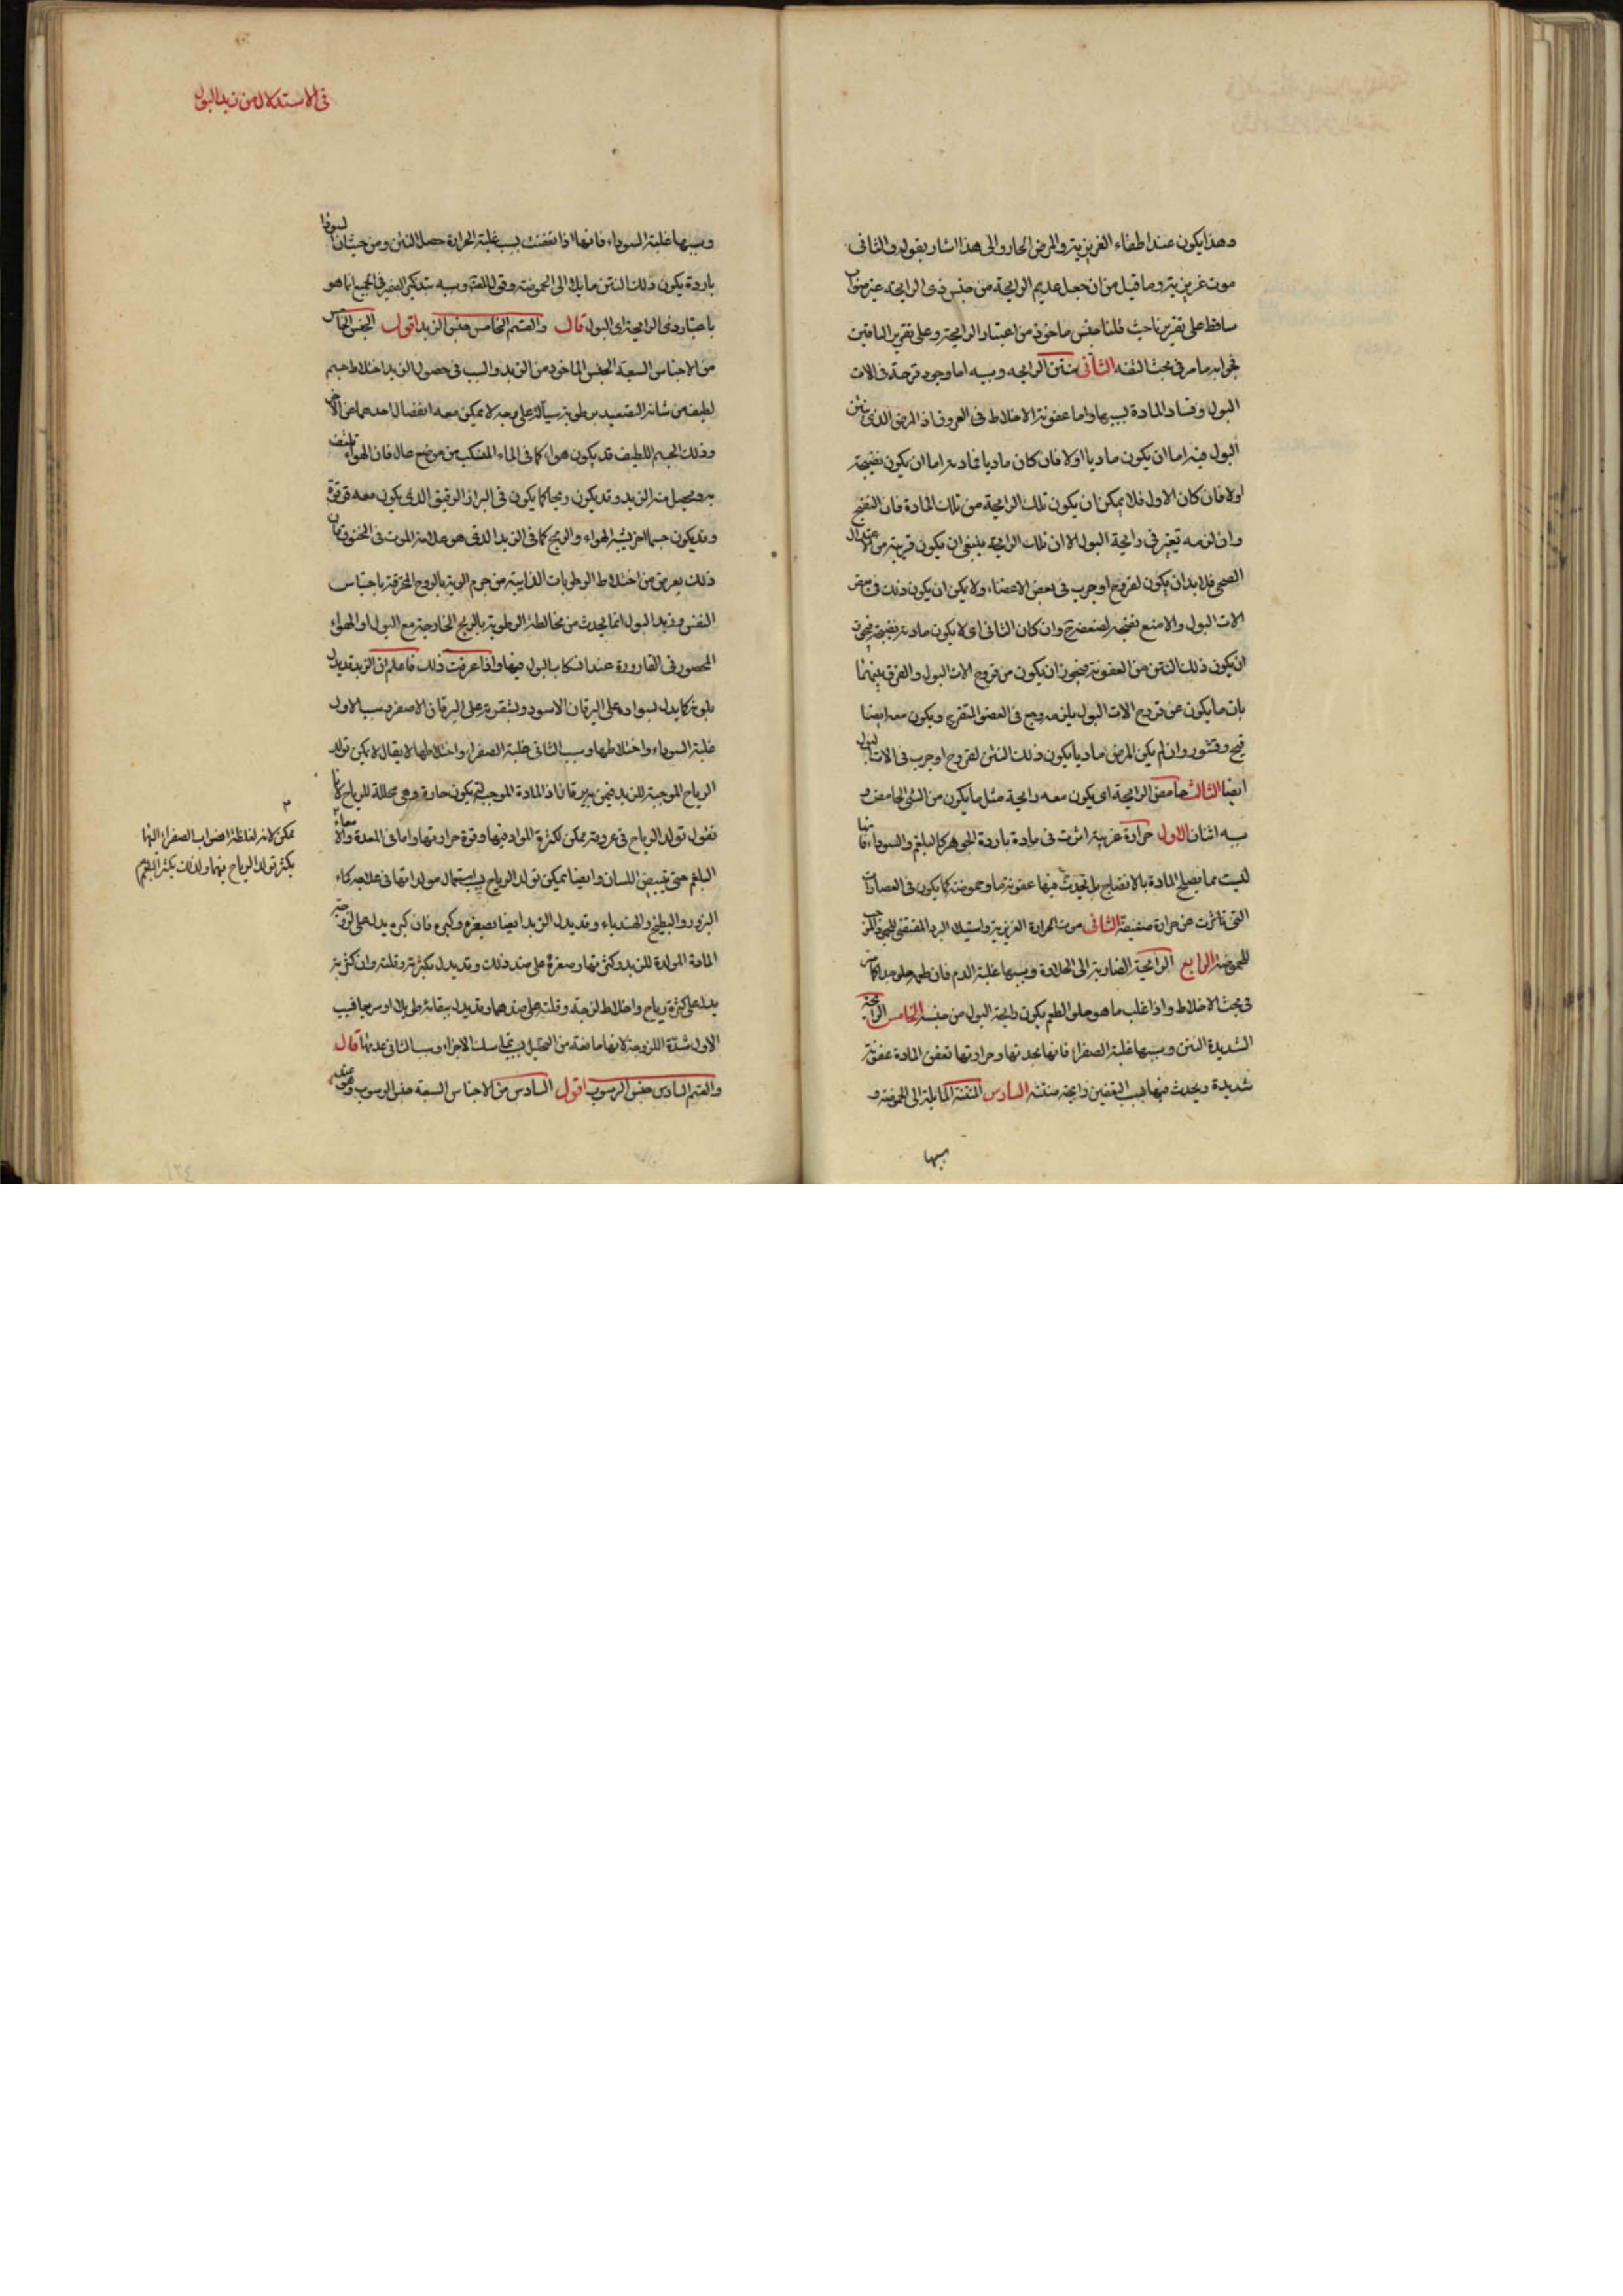 وهذا يكون عند اطفاء الغريزية والمرض الحار والى هذا اشار بقوله والثانى
موت غريزية وما قيل من ان جعل عديم الرايحة من جنس ذى الرايحة غير صواب
ساقط على تقريرنا حيث قلنا جنس ماخوذ من اعتبار الرايحة وعلى تقرير الباقين
فجوابه ما مر فى بحث الثفه الثانى منتن الرايحه وسببه اما وجود قرحة فى الات
البول وفساد المادة بسببها واما عفونة الاخلاط فى العروق اذ المرض الذى نتن
البول فيه اما ان يكون ماديا اولا فان كان ماديا فمادته اما ان يكون نضيجة
اولا فان كان الاول فلا يمكن ان يكون تلك الرايحة من تلك المادة فان النضج
وان لزمه تغير فى رايحة البول الا ان تلك الرايحة ينبغى ان يكون قريبة من الاعتدال
الصحى فلا بد ان يكون لقروح او جرب فى بعض الاعضاء ولا يمكن ان يكون ذلك فى بعض
الات البول والا منع نضجه لضعفه وان كان الثانى اى لا يكون مادته نضيجة فيجوز
ان يكون ذلك النتن من العفونة ويجوز ان يكون من قروح الات البول والفرق بينهما
بان ما يكون عن قروح الات البول يلزمه وجع فى العضو المتقرح ويكون معه ايضا
قيح وقشور وان لم يكن المرض ماديا يكون ذلك النتن لقروح او جرب فى الات البول
ايضا الثالث حامض الرايحة اى يكون معه رايحة مثل ما يكون من الشئ الحامض و
سببه اثنان الاول حرارة غريبة اثرت فى مادة باردة الجوهر كالبلغم والسوداء فانها
ليست مما يصلح المادة بالانضاج بل تحدث فيها عفونة ما وحموضة كما يكون فى العصارات
التى تاثرت عن حرارة ضعيفة الثانى موت الحرارة الغريزية واستيلاء البرد المقتضى للجمود الموجب
للحموضة الرابع الرايحة الضاربة الى الحلاوة وسببها غلبة الدم فان طعمه حلو جدا كما مر
فى بحث الاخلاط واذا غلب ما هو حلو الطعم يكون رايحة البول من جنسه الخامس الرايحة
الشديدة النتن وسببها غلبة الصفراء فانها بحدتها وحرارتها تعفن المادة عفونة
شديدة ويحدث فيها بسبب التعفين رايحة منتنة السادس المنتنة المايلة الى الحموضة و
سببها
فى الاستدلال من زبد البول
وسببها غلبة السوداء فانها اذا تعفنت بسبب غلبة الحرارة حصل النتن ومن حيث ان السوداء
باردة يكون ذلك النتن مايلا الى الحموضة وقول المصنف وسببه بتذكير الضمير فى الجميع انما هو
باعتبار ذى الرايحة اى البول قال والقسم الخامس جنس الزبد اقول الجنس الخامس
من الاجناس السبعة الجنس الماخوذ من الزبد والسبب فى حصول الزبد اختلاط جسم
لطيف من شانه التصعيد برطوبة سيالة على وجه لا يمكن معه انفصال احدهما عن الاخر
وذلك الجسم اللطيف قد يكون هواء كما فى الماء المنسكب من موضع عال فان الهواء يلتف
به ويحصل منه الزبد وقد يكون ريحا كما يكون فى البراز الرقيق الذى يكون معه قرقرة
وقد يكون جسما اخر يشبه الهواء والريح كما فى الزبد الذى هو علامة الموت فى المخنوق فان
ذلك يعرض من اختلاط الرطوبات الذايبة من جرم الرية بالروح المحترقة باحتباس
النفس وزبد البول انما يحدث من مخالطة الرطوبة بالريح الخارجة مع البول او الهواء
المحصور فى القارورة عند انسكاب البول فيها واذا عرفت ذلك فاعلم ان الزبد قد يدل
بلونه كما يدل بسواده على اليرقان الاسود وبشقرته على اليرقان الاصفر وسبب الاول
غلبة السوداء واختلاطها وسبب الثانى غلبة الصفراء واختلاطها لا يقال لا يمكن تولد
الرياح الموجبة للزبد فيمن به يرقان اذ المادة الموجبة له يكون حارة وهى محللة للرياح لانا
نقول تولد الرياح فى عروقه ممكن لكثرة المواد فيها وقوة حرارتها واما فى المعدة والامعاء
البلغم حتى تبيض اللسان وايضا يمكن تولد الرياح باستعمال مولداتها فى علاجه كماء
البزور والبطيخ والهندباء وقد يدل الزبد ايضا بصغره وكبره فان كبره يدل على لزوجة
المادة المولدة للزبد وكثرتها وصغره على ضد ذلك وقد يدل بكثرته وقلته وان كثرته
يدل على كثرة رياح واخلاط لزجة وقلته على ضدهما وقد يدل ببقائه طويلا او سريعا فسبب
الاول شدة اللزوجة لانها مانعة من التحليل بسبب تماسك الاجزاء وسبب الثانى عدمها قال
والقسم السادس جنس الرسوب اقول السادس من الاجناس السبعة جنس الرسوب وهو عند
ممكن لانه لغلظه انصباب الصفراء اليهما
يكثر تولد الرياح فيهما ولذلك يكثر البلغم
١٢٤